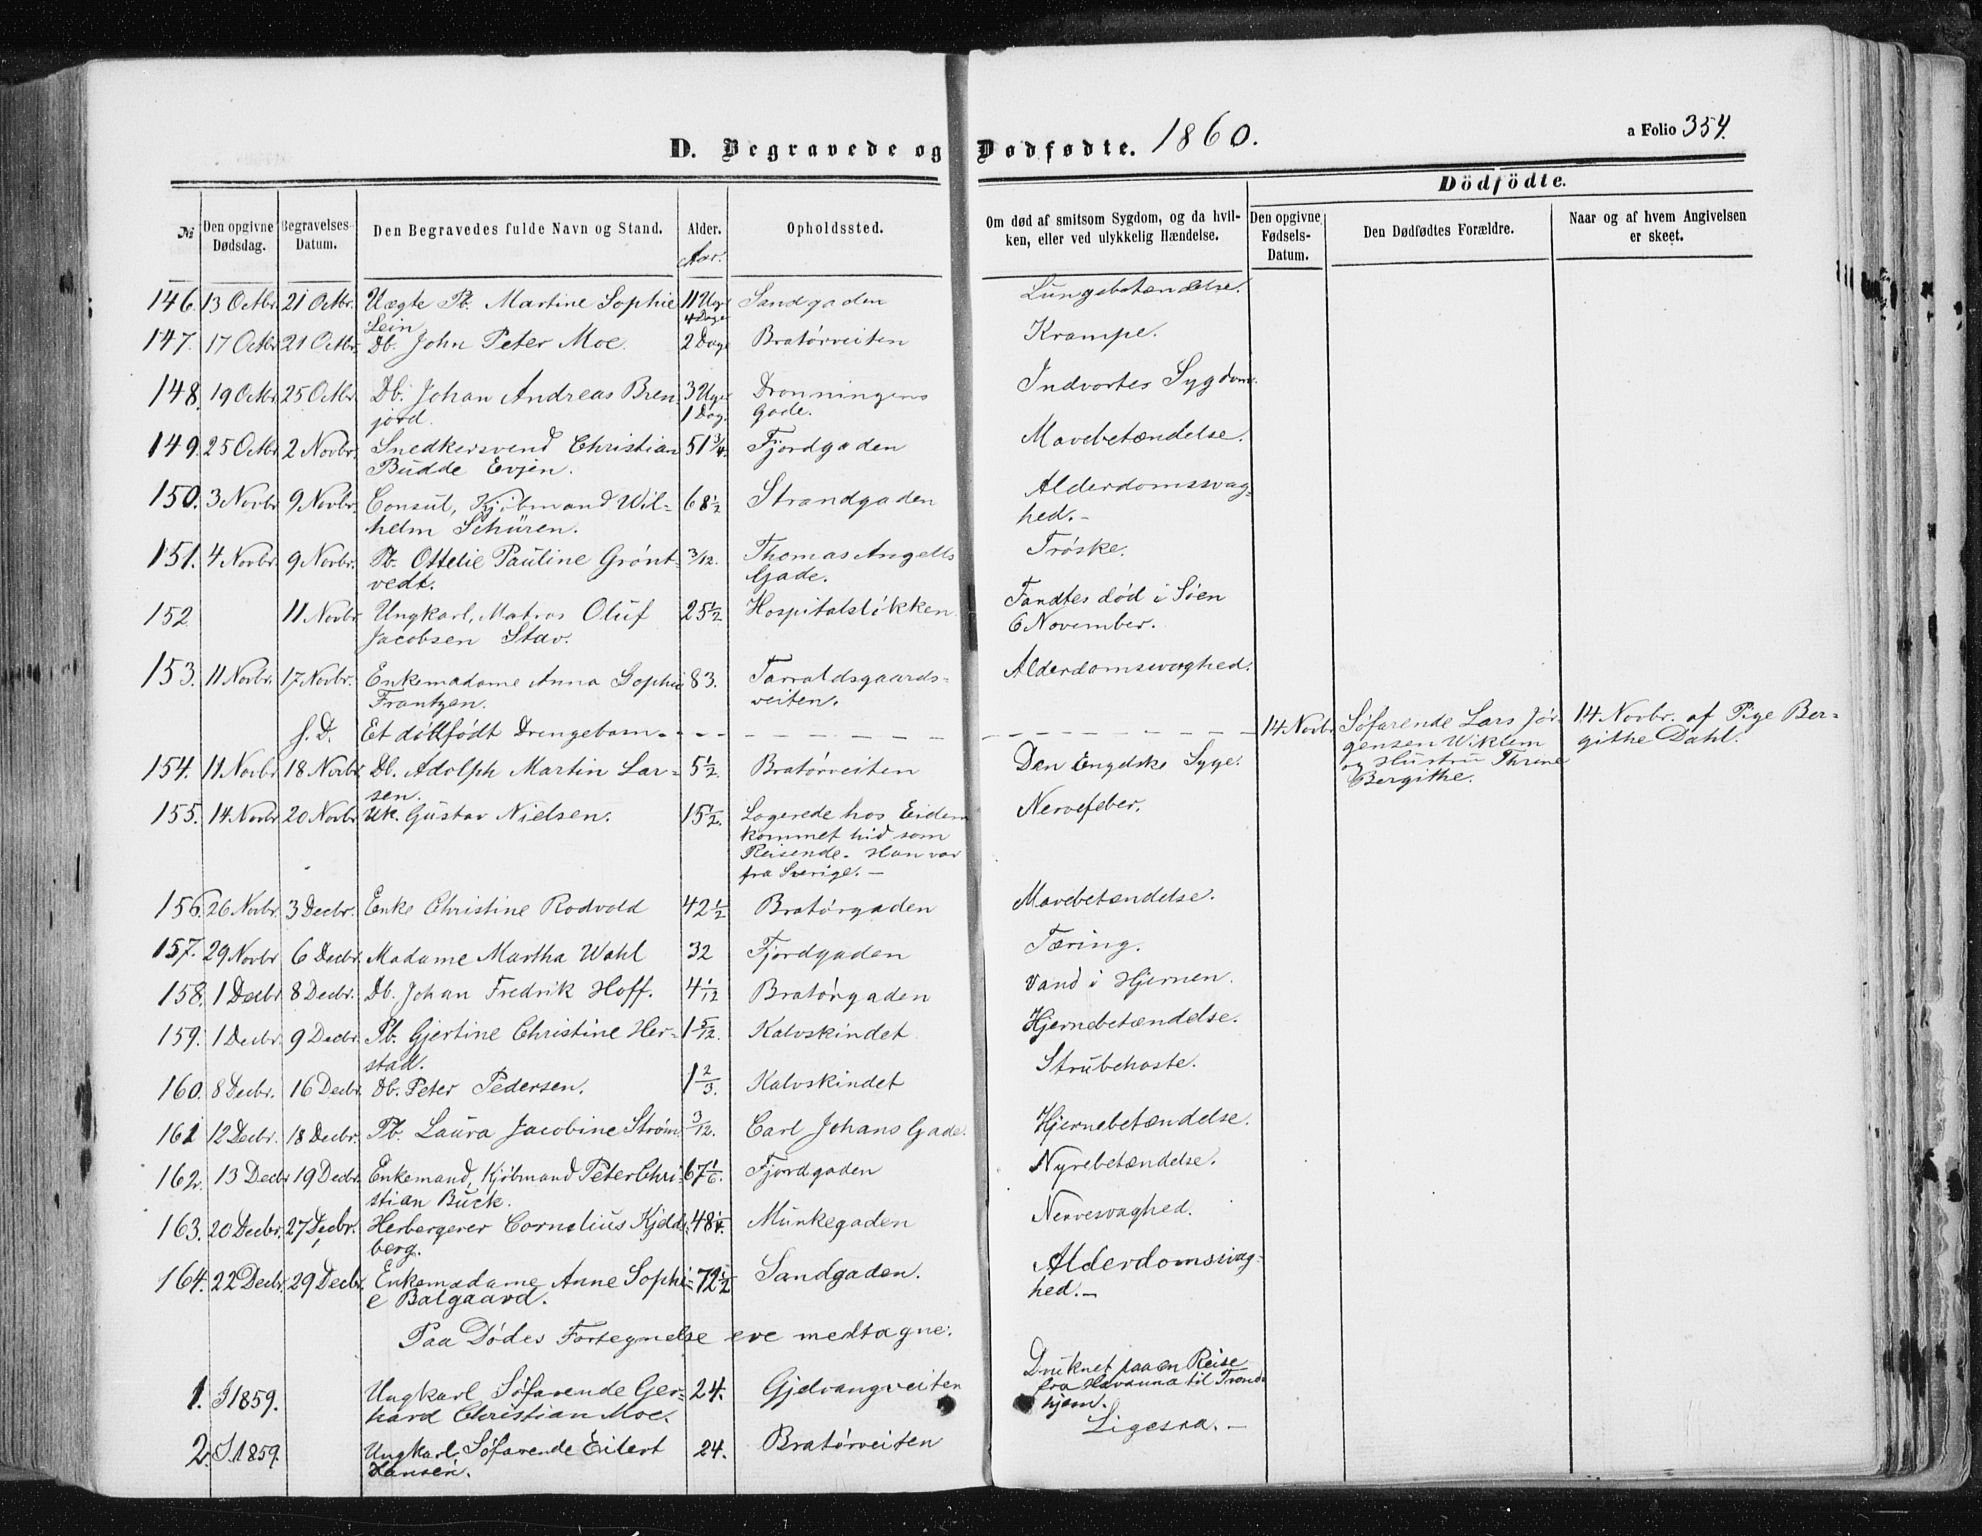 D. Begravede og Dødfødte. 1860.
a Folio 354.
Dödfödte.
№
Den opgivne Dødsdag.
Begravelses-Datum.
Den Begravedes fulde Navn og Stand.
Alder.
Aar.
Opholdssted.
Om død af smitsom Sygdom, og da hvil-
ken, eller ved ulykkelig Hændelse.
Den opgivne Fødsels-Datum.
Den Dødfødtes Forældre.
Naar og af hvem Angivelsen
er skeet.
146. 13 Octbr. 21 Octbr. Uægte Pb. Martine Sophie 11 Uger Sandgaden Lungebetændelse.
Lein 4 Dage
147. 17 Octbr 21 Octbr. Db. John Peter Moe. 2 Dage Bratørveiten Krampe.
148. 19 Octbr 25 Octbr. Db. Johan Andreas Bren- 3 Uger Dronningens Indvortes Sygdom.
jord. 1 Dag. Gade.
149. 25 Octbr 2 Novbr. Snedkersvend Christian 51 3/4. Fjordgaden Mavebetændelse.
Budde Evjen.
150. 3 Novbr 9 Novbr. Consul, Kjøbmand Wil- 68 1/2 Strandgaden Alderdomssvag-
helm Schüren. hed.-
151. 4 Novbr. 9 Novbr. Pb. Ottelie Pauline Grønt- 3/12. Thomas Angells Trøske.
vedt. Gade.
152 11 Novbr Ungkarl, Matros Oluf 25 1/2 Hospitalsløkken Fandtes død i Søen
Jacobsen Stav. 6 November.
153. 11 Novbr. 17 Novbr. Enkemadame Anna Sophie 83. Tarraldsgaards- Alderdomssvaghed.
Frantzen. veiten.
f. D. Et dødfødt Drengebarn - - - - 14 Novbr Søfarende Lars Jør- 14 Novbr. af Pige Ber-
gensen Wiklem githe Dahl.
og Hustru Thrine
Bergithe.
154. 11 Novbr 18 Novbr. Db. Adolph Martin Lar- 5 1/2. Bratørveiten Den Engelske Syge.
sen.
155. 14 Novbr 20 Novbr. Uk. Gustav Nielsen. 15 1/2. Logerede hos Eidem Nervefeber.
kommet hid som
Reisende. Han var
fra Sverige. -
156. 26 Novbr. 3 Decbr. Enke Christine Rodvold 42 1/2 Bratørgaden Mavebetændelse.
157. 29 Novbr 6 Decbr. Madame Martha Wahl 32 Fjordgaden Tæring.
158. 1 Decbr 8 Decbr. Db. Johan Fredrik Hoff. 4 1/12 Bratørgaden Vand i Hjernen.
159. 1 Decbr. 9 Decbr. Pb. Gjertine Christine Her- 1 5/12. Kalvskindet Hjernebetændelse.
stad.
160. 8 Decbr. 16 Decbr. Db. Peter Pedersen. 1 2/3. Kalvskindet Strubehoste.
161 12 Decbr. 18 Decbr. Pb. Laura Jacobine Strøm 3/12. Carl Johans Gade. Hjernebetændelse.
162. 13 Decbr 19 Decbr. Enkemand, Kjøbmand Peter Chri- 67 1/6. Fjordgaden Nyrebetændelse.
stian Buck.
163. 20 Decbr. 27 Decbr. Herbergerer Cornelius Kjelds- 48 1/4. Munkegaden Nervesvaghed.
berg.
164. 22 Decbr. 29 Decbr. Enkemadame Anne Sophi- 72 1/2 Sandgaden. Alderdomssvag-
e Balgaard. hed.-
Paa Dødes Fortegnelse ere medtagne:
1. I 1859. Ungkarl Søfarende Ger- 24. Gjelvangveiten Druknet paa en Reise
hard Christian Moe. fra Havanna til Trond-
hjem.
2. I 1859. Ungkarl, Søfarende Eilert 24. Bratørveiten Ligesaa. -
Hansen.